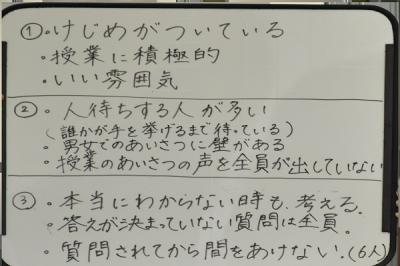 ①・けじめがついている
・授業に積極的
・いい雰囲気
②・人待ちする人が多い
(誰かが手を挙げるまで待っている)
・男女でのあいさつに壁がある
・授業のあいさつの声を全員が出していない
③・本当にわからない時も、考える。
・答えが決まっていない質問は全員。
・質問されてから間をあけない。(6人)